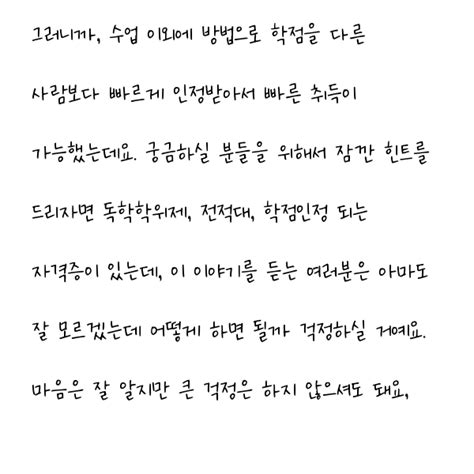 그러니까, 수업 이외에 방법으로 학점을 다른
사람보다 빠르게 인정받아서 빠른 취득이
가능했는데요. 궁금하실 분들을 위해서 잠깐 힌트를
드리자면 독학학위제, 전적대, 학점인정 되는
자격증이 있는데, 이 이야기를 듣는 여러분은 아마도
잘 모르겠는데 어떻게 하면 될까 걱정하실 거예요.
마음은 잘 알지만 큰 걱정은 하지 않으셔도 돼요,